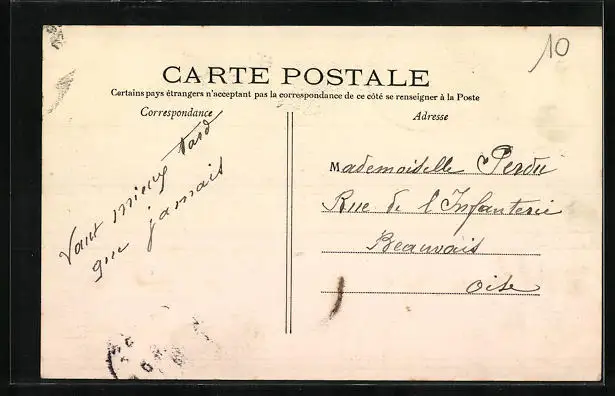 10
CARTE POSTALE
Certains pays étrangers n'acceptant pas la correspondance de ce côté se renseigner à la Poste
Correspondance
Adresse
Vaut mieux tard
que jamais
Mademoiselle Perdu
Rue de l'Infanterie
Beauvais
Oise